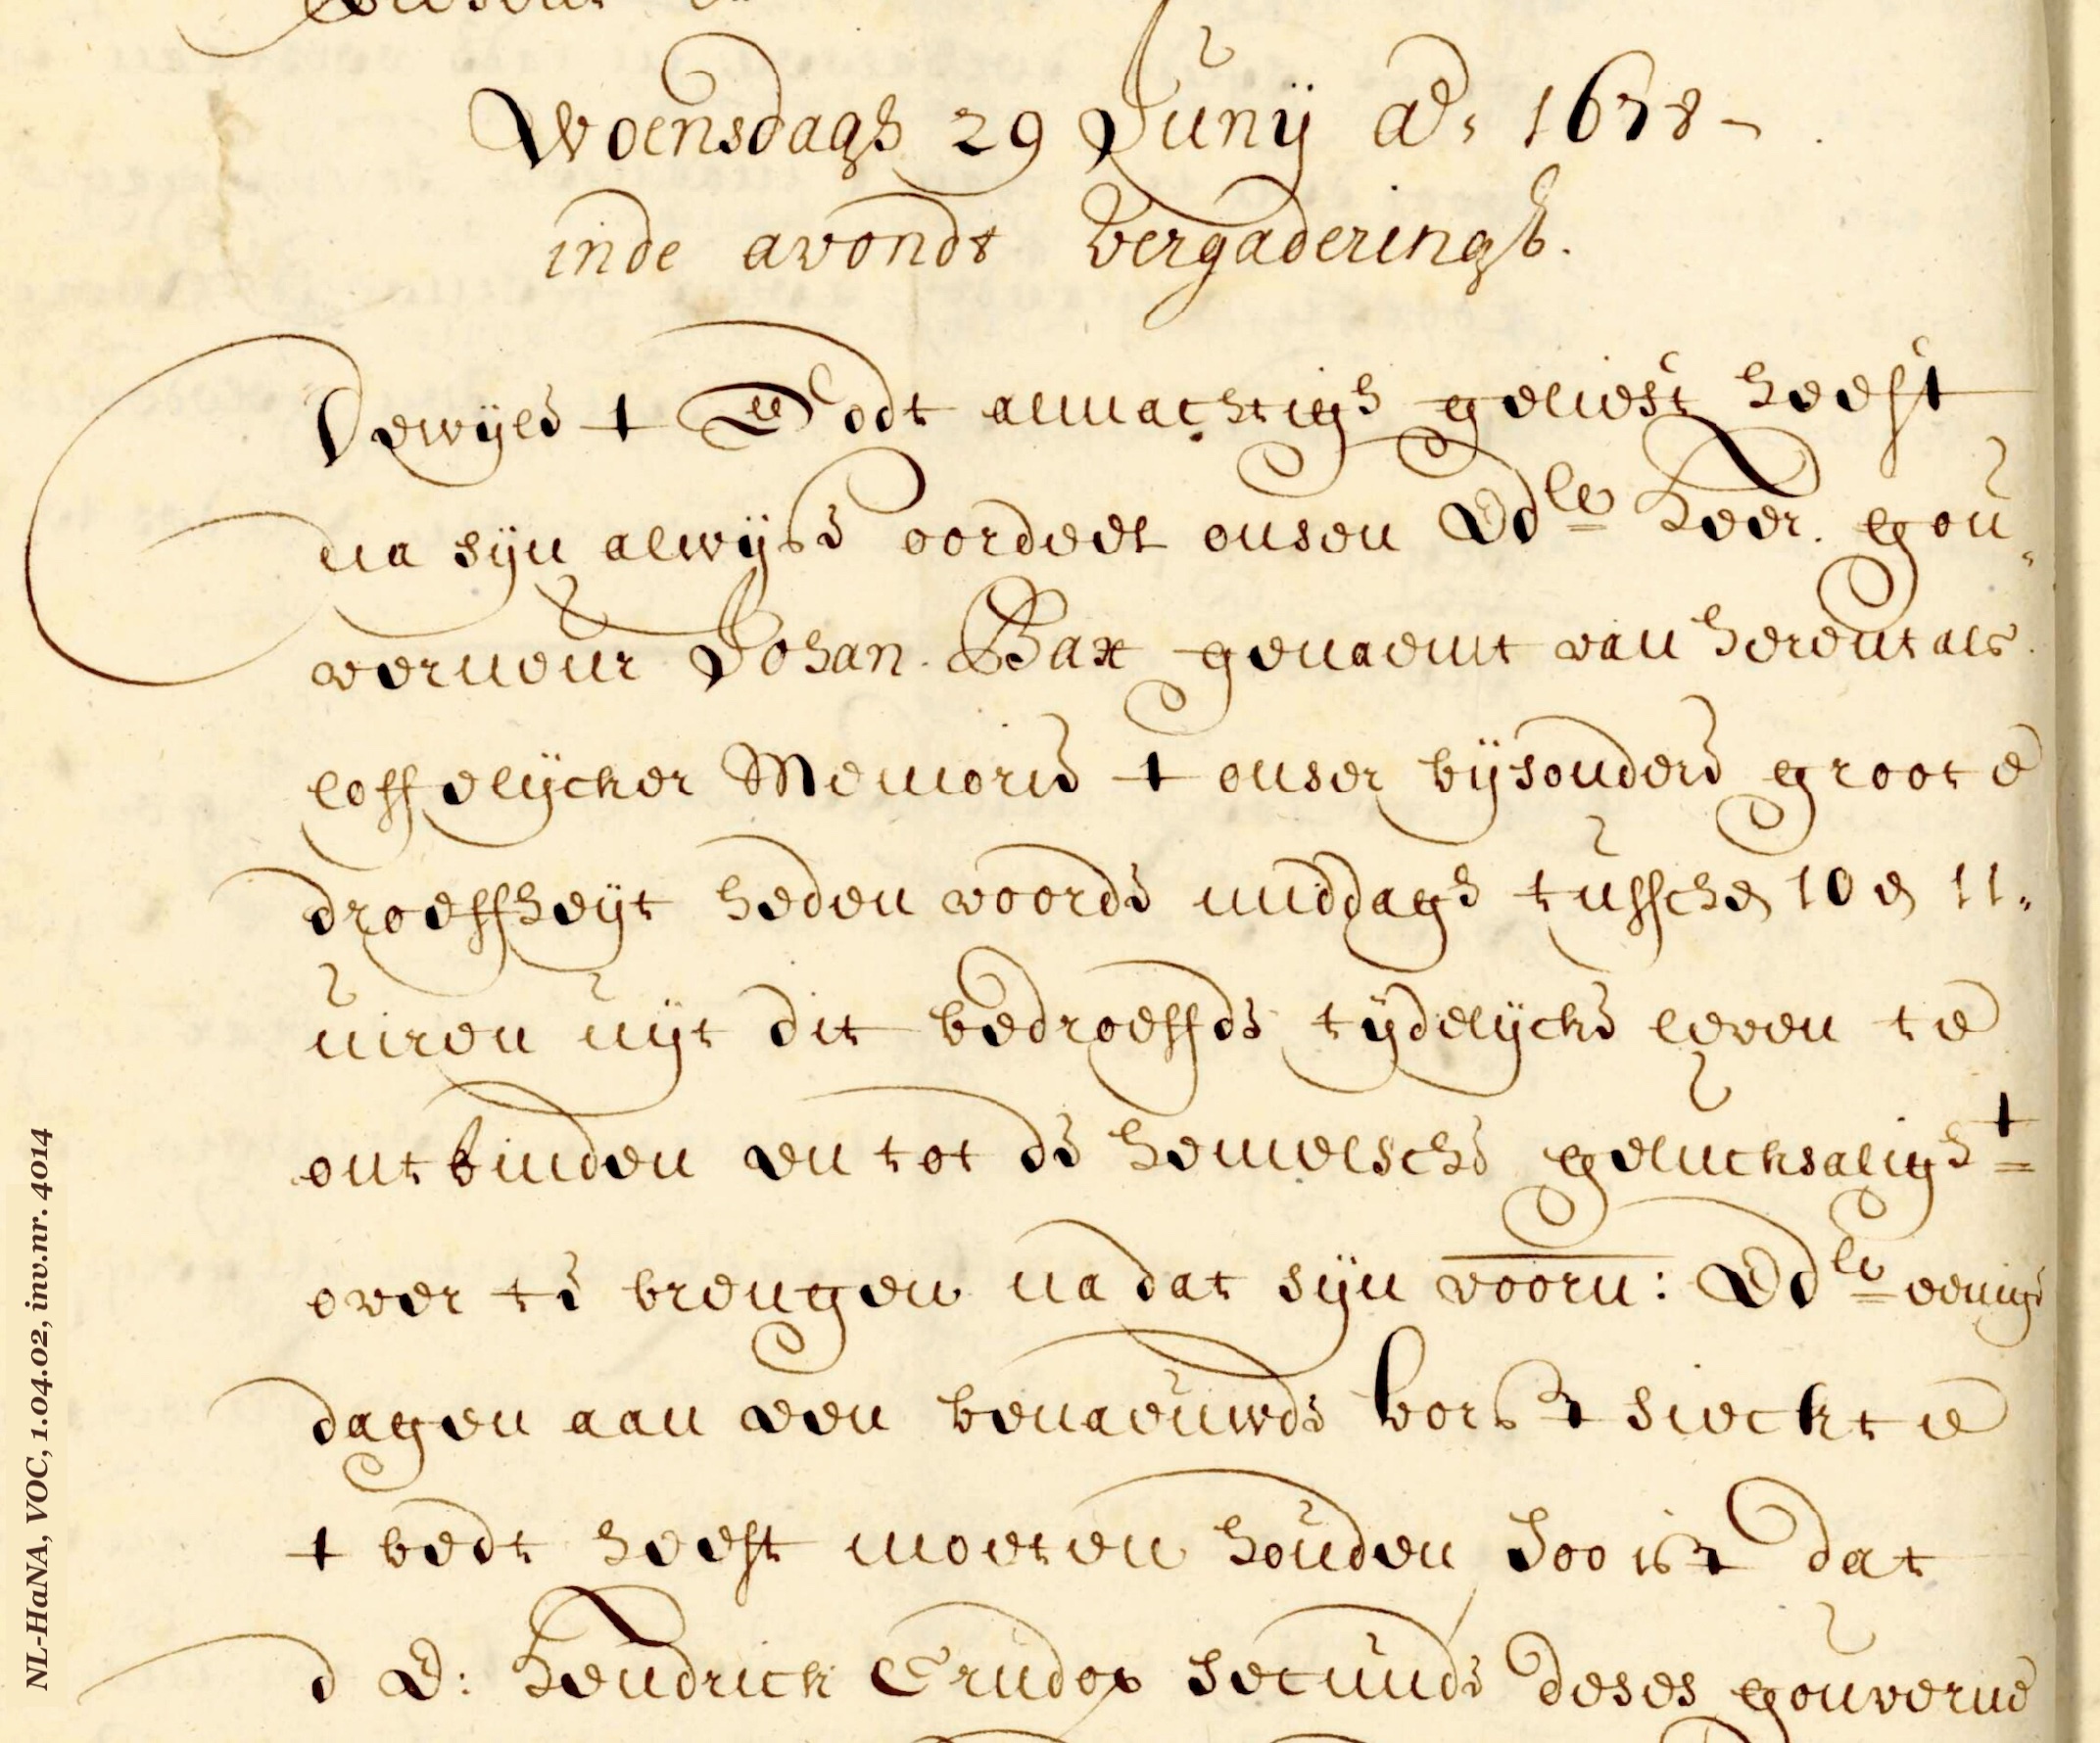 Woensdagh 29 Junij ao. 1678 -
inde avondt vergaderingh.
Dewijle t Godt almachtigh gelieft heeft
na sijn alwijse oordeel onsen Edle Heer. gou„
verneur Johan. Bax genaemt van herentals.
loffelijcker Memorie t onser bijsondere groote
droeffheijt heden voorde middagh tussche 10 e 11„
uiren uijt dit bedroeffde tijdelijcke leven te
ontbinden en tot de hemelsche gelucksalight
over te brengen na dat sijn voorn: Edle eenige
dagen aan een benaeuwde borst sieckte
t bedt heeft moeten houden Soo ist dat
d E: Hendrick Crudop Secunde deses gouverne
NL-HaNA, VOC, 1.04.02, inv.nr. 4014